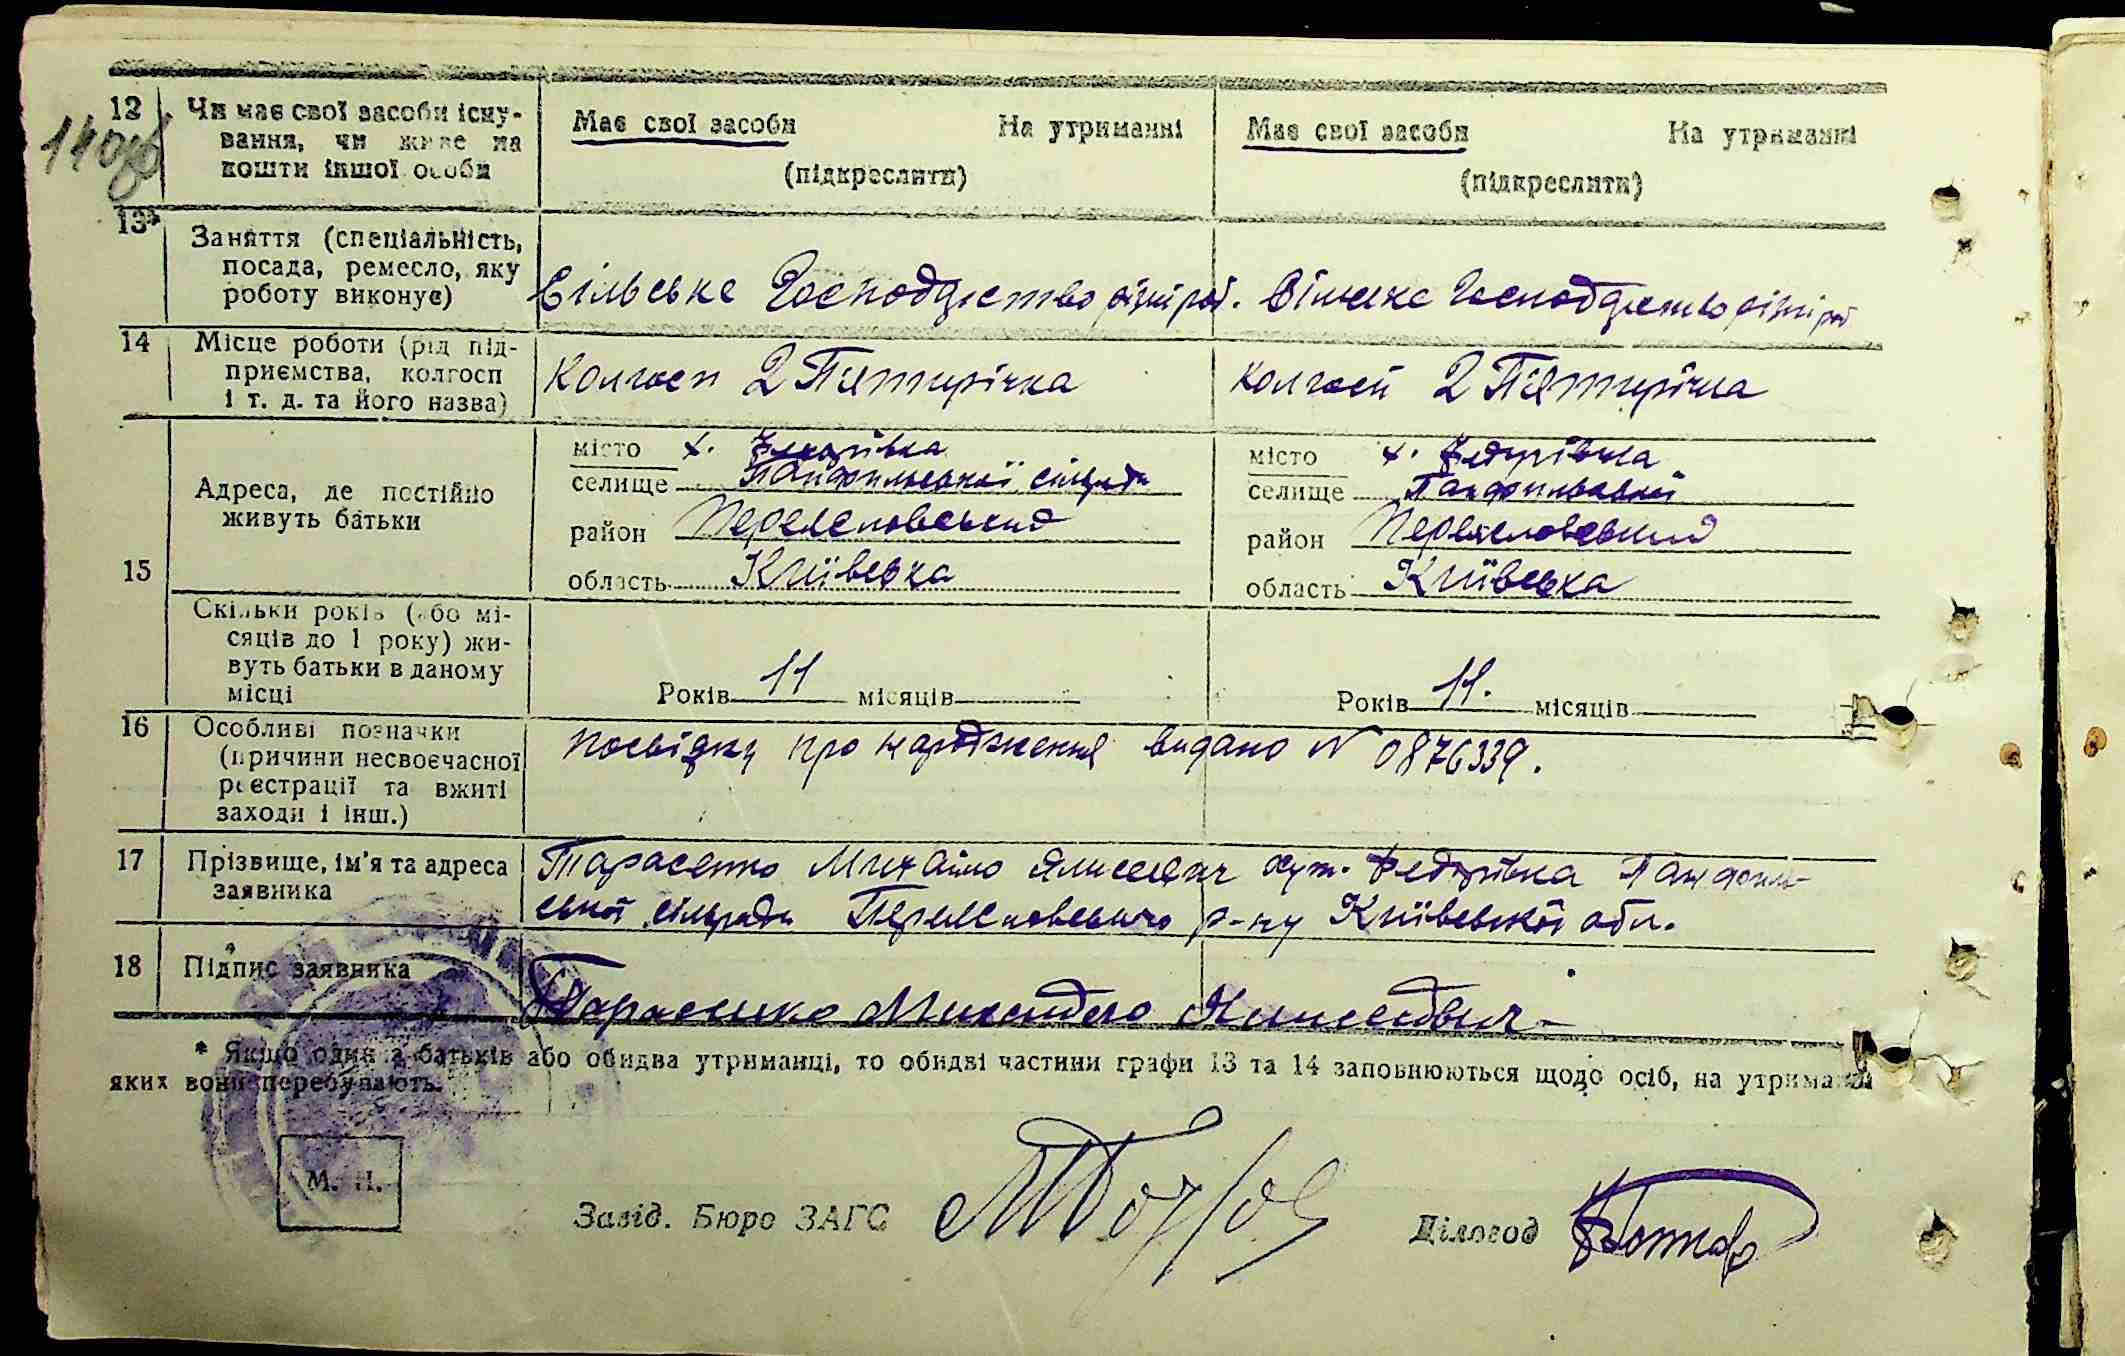 140зв
12 Чи має свої засоби існу- Має свої засоби На утриманні Має свої засоби На утриманні
вання, чи живе на
кошти іншої особи (підкреслити) (підкреслити)
13* Заняття (спеціальність,
посада, ремесло, яку
роботу виконує) Сільське Господарство різні роб. Сільське Господарство різні роб
14 Місце роботи (рід під-
приємства, колгосп Колгосп 2 Пятирічка Колгосп 2 Пятирічка
і т. д. та його назва)
15 Адреса, де постійно
живуть батьки
місто х. Федорівка місто х. Федорівка
селище Панфильської сільради селище Панфильської
район Переяславський район Переяславський
область Київська область Київська
Скільки років (або мі-
сяців до 1 року) жи-
вуть батьки в даному
місці Років 11 місяців Років 11. місяців
16 Особливі позначки Посвідку про народження видано N 0876339.
(причини несвоєчасної
реєстрації та вжиті
заходи і інш.)
17 Прізвище, ім'я та адреса Тарасенко Михайло Ялисеевич хут. Федорівка Панфиль-
заявника ської сільради Переяславського р-ну Київської обл.
18 Підпис заявника Тарасенко
* Якщо один з батьків або обидва утриманці, то обидві частини графи 13 та 14 заповнюються щодо осіб, на утриманні
яких вони перебувають.
М. П.
Завід. Бюро ЗАГС Діловод